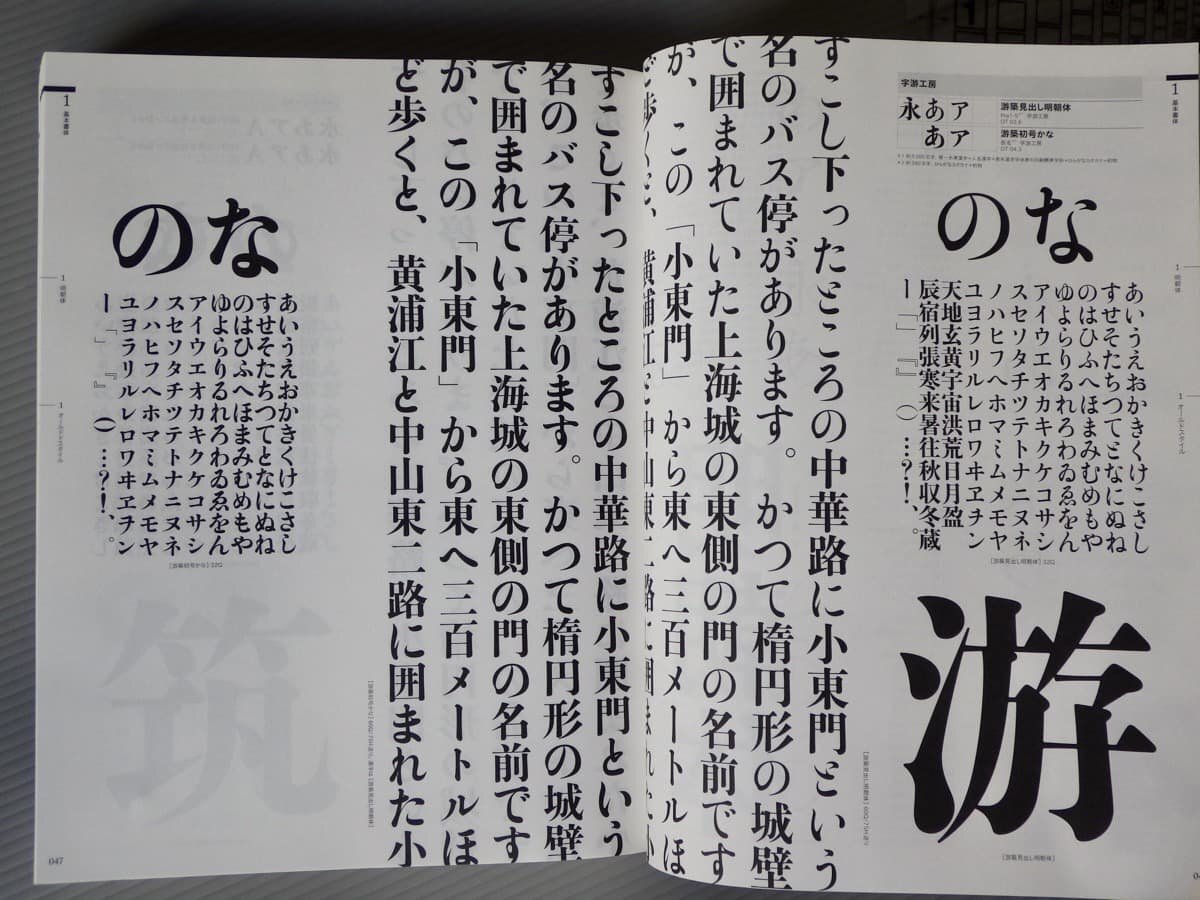 1
基本書体
1
明朝体
1
オールドスタイル
字游工房
永あア
游築見出し明朝体
字游工房
あア
游築初号かな
字游工房
OT 04.3
なの
あいうえおかきくけこさし
すせそたちつてとなにぬね
のはひふへほまみむめもや
ゆよらりるれろわゐゑをん
アイウエオカキクケコサシ
スセソタチツテトナニヌネ
ノハヒフヘホマミムメモヤ
ユヨラリルレロワヰヱヲン
天地玄黄宇宙洪荒日月盈
辰宿列張寒来暑往秋収冬蔵
ー「」『』（）…？！、。
[游築見出し明朝体] 32Q
游
[游築見出し明朝体]
すこし下ったところの中華路に小東門という
名のバス停があります。かつて楕円形の城壁
で囲まれていた上海城の東側の門の名前です
が、この「小東門」から東へ三百メートルほ
ど歩くと、黄浦江と中山東二路に囲まれた小
すこし下ったところの中華路に小東門という
名のバス停があります。かつて楕円形の城壁
で囲まれていた上海城の東側の門の名前です
が、この「小東門」から東へ三百メートルほ
ど歩くと、黄浦江と中山東二路に囲まれた小
なの
あいうえおかきくけこさし
すせそたちつてとなにぬね
のはひふへほまみむめもや
ゆよらりるれろわゐゑをん
アイウエオカキクケコサシ
スセソタチツテトナニヌネ
ノハヒフヘホマミムメモヤ
ユヨラリルレロワヰヱヲン
ー「」『』（）…？！、。
[游築初号かな] 32Q
筑
1
基本書体
1
明朝体
1
オールドスタイル
047